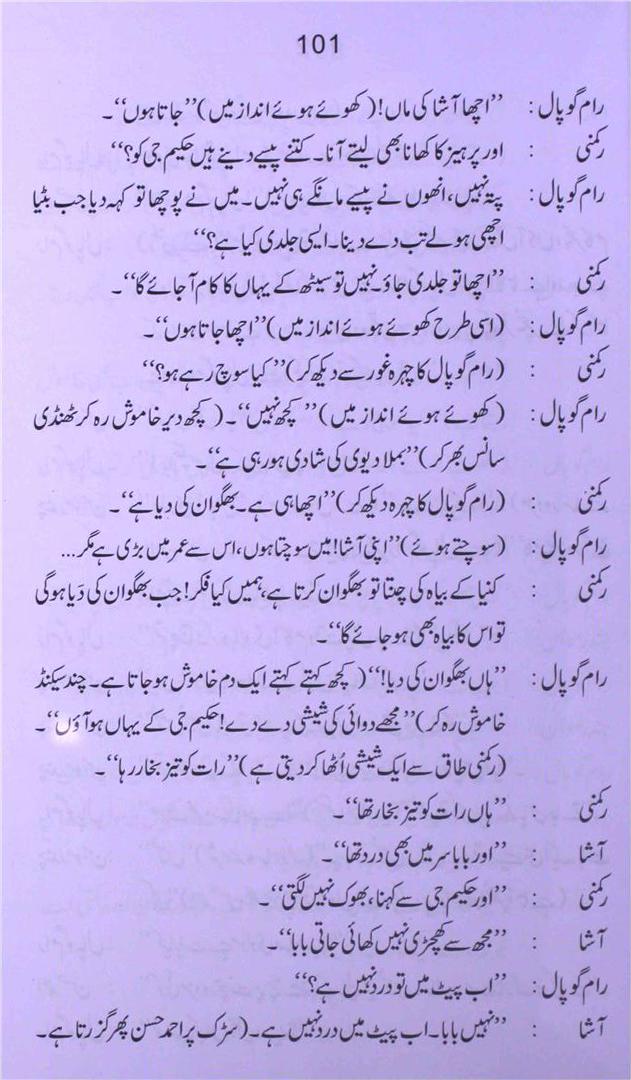 101
رام گوپال : ’’اچھا آشا کی ماں! (کھوئے ہوئے انداز میں) ’’جاتا ہوں‘‘۔
رکمنی : اور پرہیز کا کھانا بھی لیتے آنا۔ کتنے پیسے دینے ہیں حکیم جی کو؟‘‘
رام گوپال : پتہ نہیں، انھوں نے پیسے مانگے ہی نہیں۔ میں نے پوچھا تو کہہ دیا جب بٹیا
اچھی ہولے تب دے دینا۔ ایسی جلدی کیا ہے؟‘‘
رکمنی : ’’اچھا تو جلدی جاؤ۔ نہیں تو سیٹھ کے یہاں کا کام آجائے گا‘‘۔
رام گوپال : (اسی طرح کھوئے ہوئے انداز میں) ’’اچھا جاتا ہوں‘‘۔
رکمنی : (رام گوپال کا چہرہ غور سے دیکھ کر) ’’کیا سوچ رہے ہو؟‘‘
رام گوپال : (کھوئے ہوئے انداز میں) ’’کچھ نہیں‘‘۔ (کچھ دیر خاموش رہ کر ٹھنڈی
سانس بھر کر) ’’بملا دیوی کی شادی ہو رہی ہے‘‘۔
رکمنی : (رام گوپال کا چہرہ دیکھ کر) ’’اچھا ہی ہے۔ بھگوان کی دیا ہے‘‘۔
رام گوپال : (سوچتے ہوئے) ’’اپنی آشا! میں سوچتا ہوں، اس سے عمر میں بڑی ہے مگر...
رکمنی : کنیا کے بیاہ کی چنتا تو بھگوان کرتا ہے، ہمیں کیا فکر! جب بھگوان کی دَیا ہوگی
تو اس کا بیاہ بھی ہو جائے گا‘‘
رام گوپال : ’’ہاں بھگوان کی دیا!‘‘ (کچھ کہتے کہتے ایک دم خاموش ہو جاتا ہے۔ چند سیکنڈ
خاموش رہ کر) ’’مجھے دوائی کی شیشی دے دے! حکیم جی کے یہاں ہو آؤں‘‘۔
(رکمنی طاق سے ایک شیشی اُٹھا کر دیتی ہے) ’’رات کو تیز بخار رہا‘‘۔
رکمنی : ’’ہاں رات کو تیز بخار تھا‘‘۔
آشا : ’’اور بابا سر میں بھی درد تھا‘‘۔
رکمنی : ’’اور حکیم جی سے کہنا، بھوک نہیں لگتی‘‘۔
آشا : ’’مجھ سے کھچڑی نہیں کھائی جاتی بابا‘‘۔
رام گوپال : ’’اب پیٹ میں تو درد نہیں ہے؟‘‘
آشا : ’’نہیں بابا۔ اب پیٹ میں درد نہیں ہے۔ (سڑک پر احمد حسن پھر گزرتا ہے۔